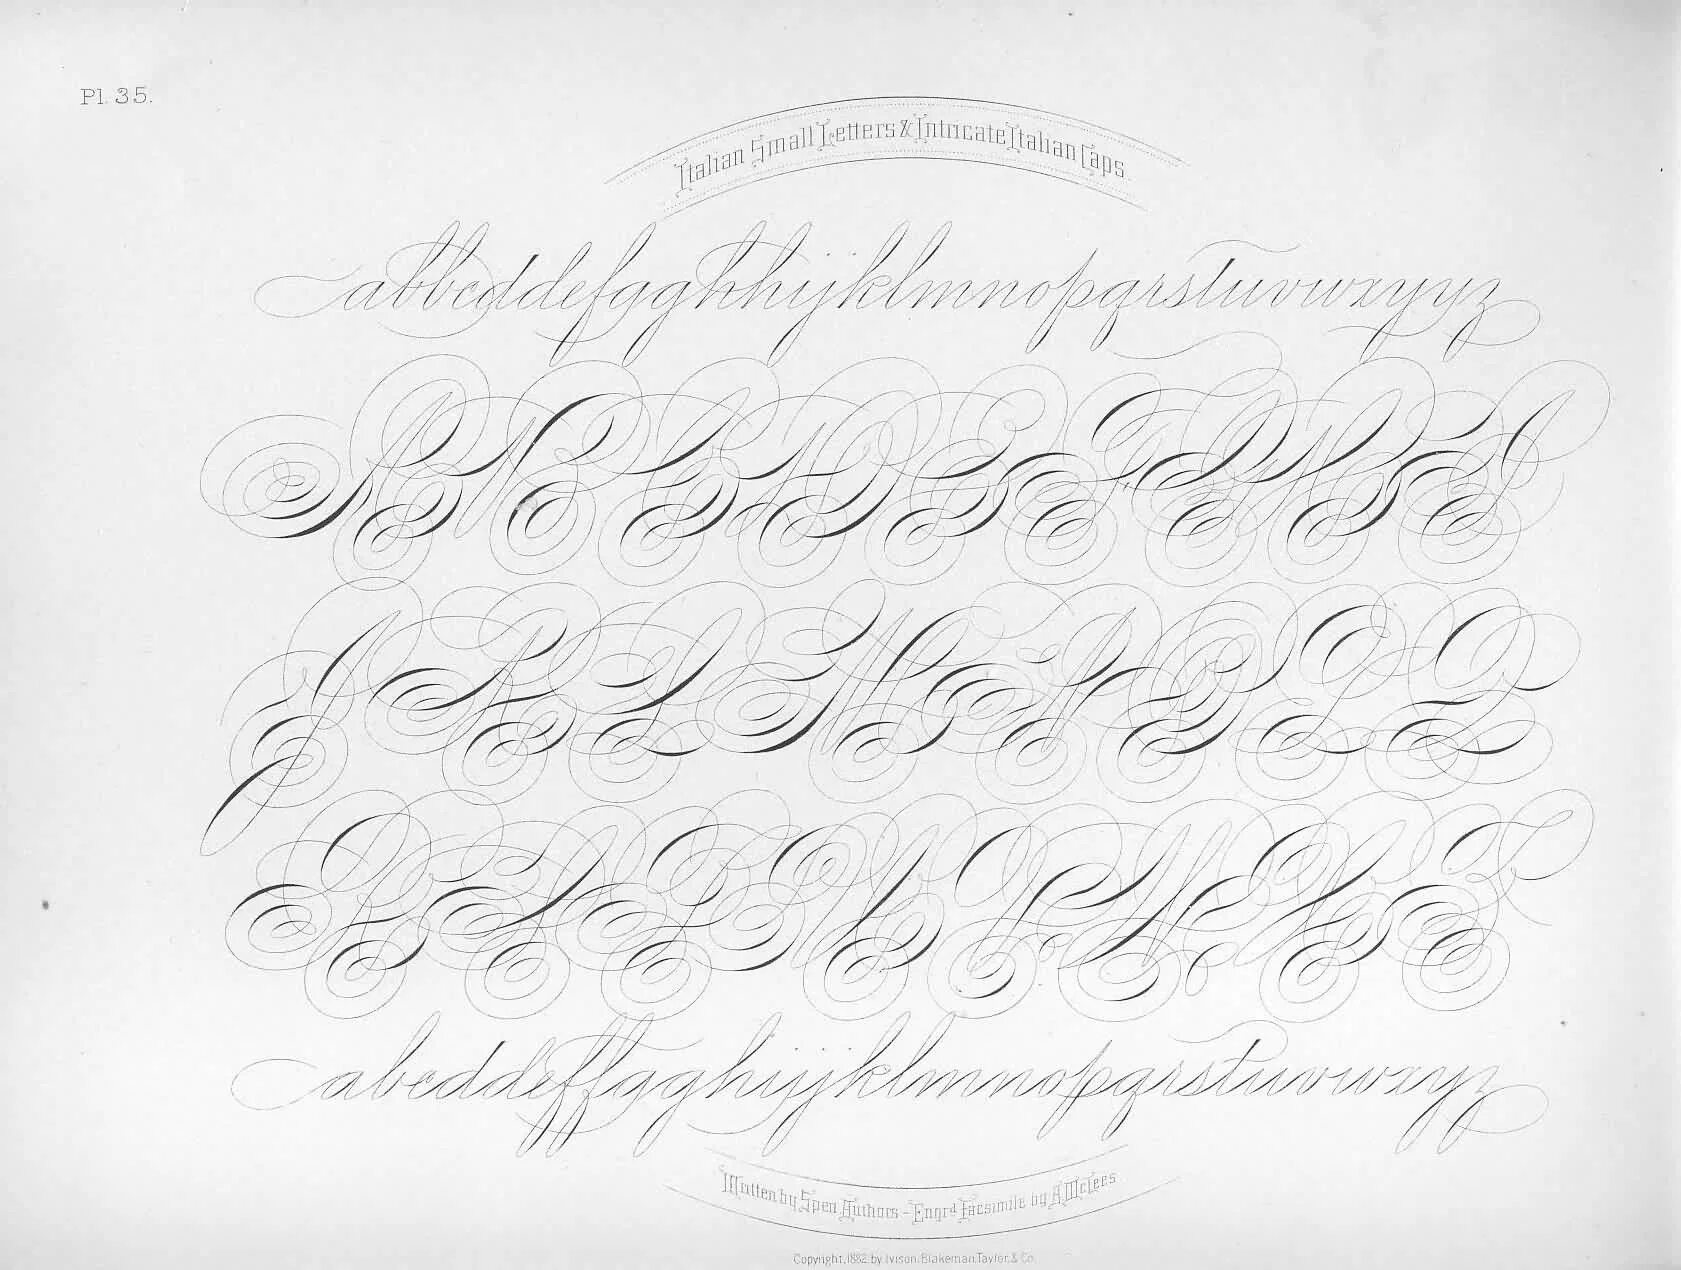 Pl. 35.
Italian Small Letters & Intricate Italian Caps.
abbcddefgghhijklmnopqrstuvwxyyz
A B C D E F G H I
J K L M N O P Q
R S T U V W X Y Z
abcddeffgghijjklmnopqrstuvwxyz
Written by Spen Authors – Engrd Facsimile by A McLees
Copyright, 1882, by Ivison, Blakeman, Taylor, & Co.